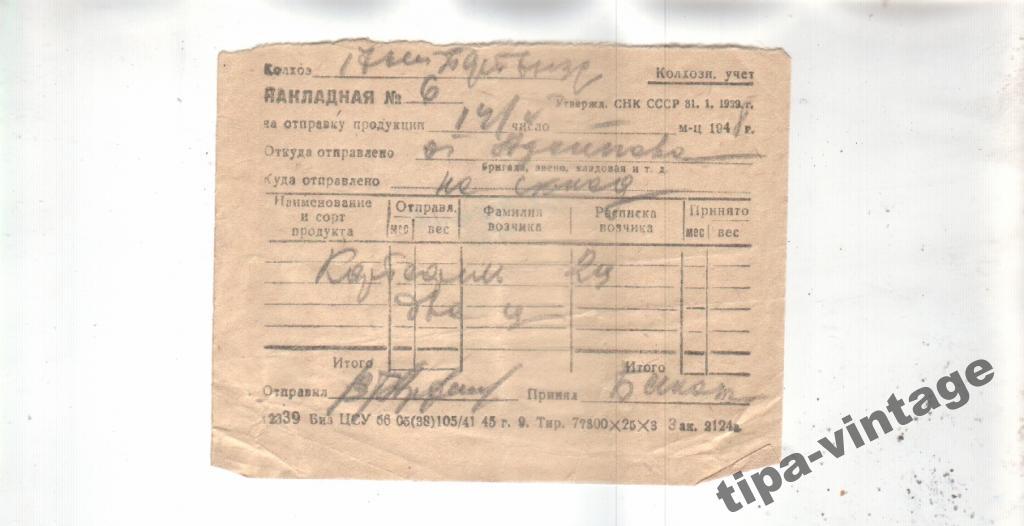 Колхоз 17 Колхозн. учет
НАКЛАДНАЯ № 6 Утвержд. СНК СССР 31. 1. 1939 г.
на отправку продукции 14/ число — м-ц 1948 г.
Откуда отправлено от
бригада, звено, кладовая и т. д.
Куда отправлено на склад
Наименование и сорт продукта Отправл. Фамилия возчика Расписка возчика Принято
мес вес мес вес
Картошки 2ц
два ц
Итого Итого
Отправил Принял
12339 Биз ЦСУ 66 05(38)105/41 45 г. 9. Тир. 77800×25×3 Зак. 2124а.
tipa-vintage